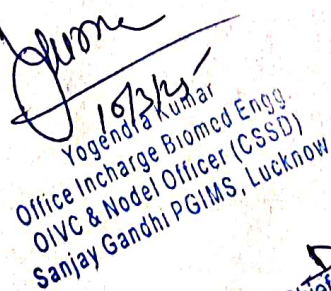 10/3/25
Yogendra Kumar
Office Incharge Biomed Engg.
OIVC & Nodel Officer (CSSD)
Sanjay Gandhi PGIMS, Lucknow